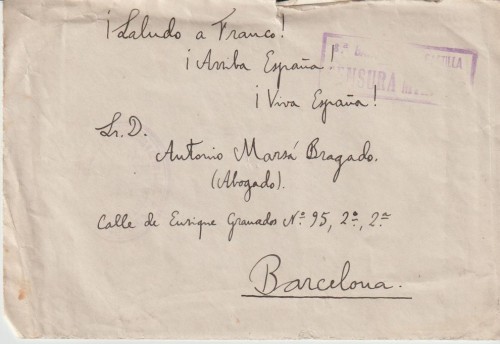 ¡Saludo a Franco!
¡Arriba España!
¡Viva España!
CENSURA
Sr. D.
Antonio Marsá Bragado.
(Abogado).
Calle de Enrique Granados Nº 95, 2º, 2ª
Barcelona.